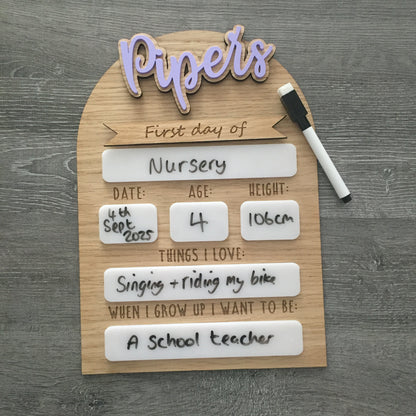 Pipers
First day of
Nursery
DATE: AGE: HEIGHT:
4th Sept 2025 4 106cm
THINGS I LOVE:
Singing + riding my bike
WHEN I GROW UP I WANT TO BE:
A school teacher